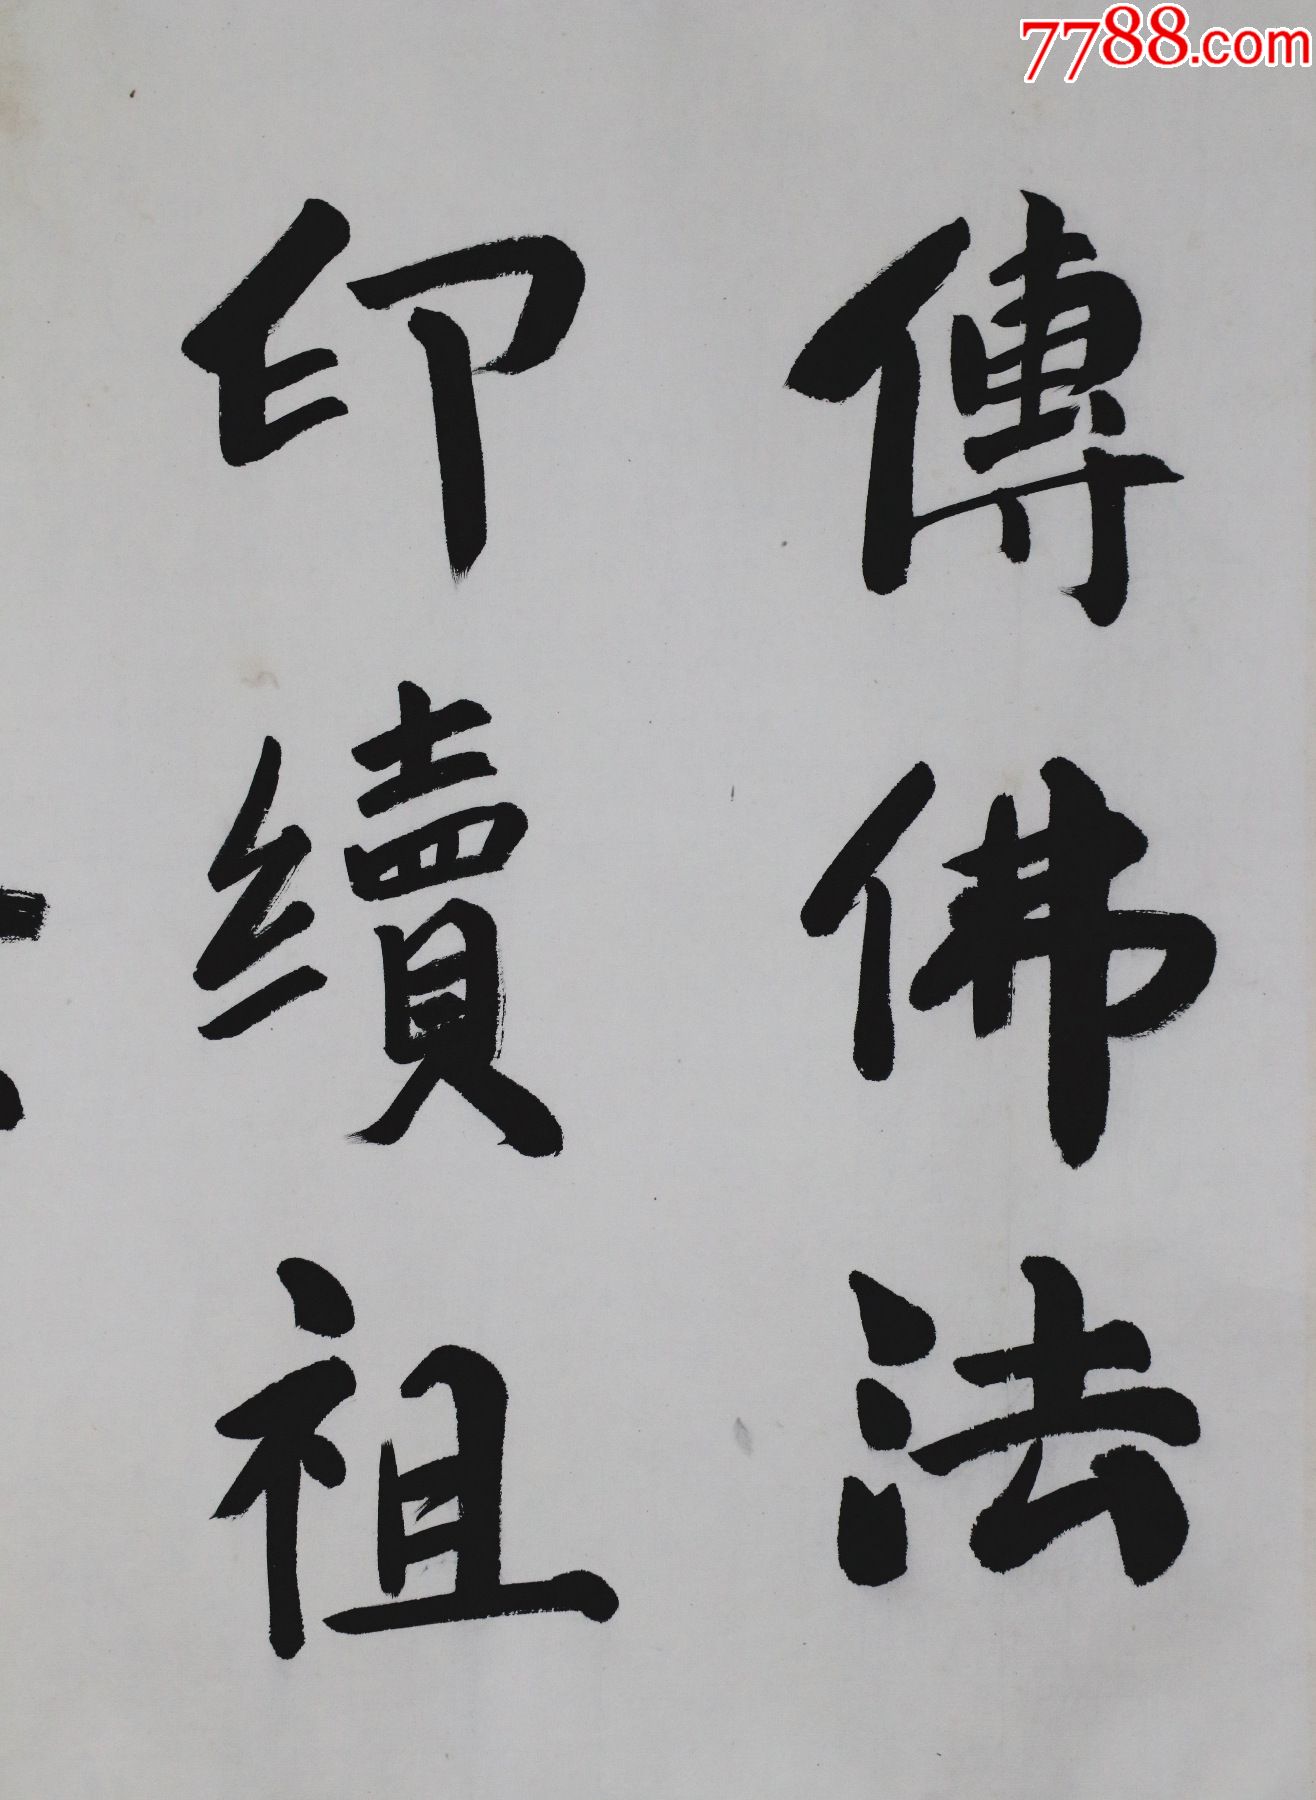 7788.com
傳佛法
印續祖